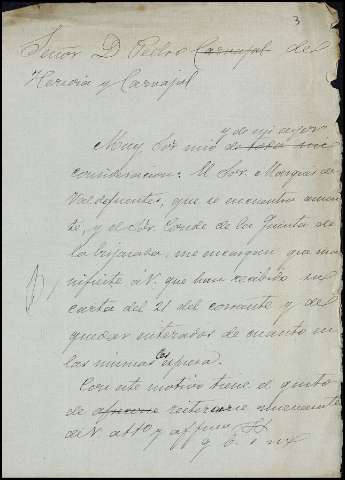 3
Señor D Pedro Carvajal de
Herivia y Carvajal
y de mi mayor
Muy Sor mio de toda mi
consideracion: Al Sor. Marques de
Valdefuentes, que se encuentra ausen
te, y el Sr. Conde de la Quinta de
la Enjarada, me encargan que ma
nifieste á V. que han recibido su
carta del 21 del corriente y de
quedar enterados de cuanto en
las mismas les espresa.
Con este motivo tiene el gusto
de reiterarse nuevamente
de V. atto y affmo